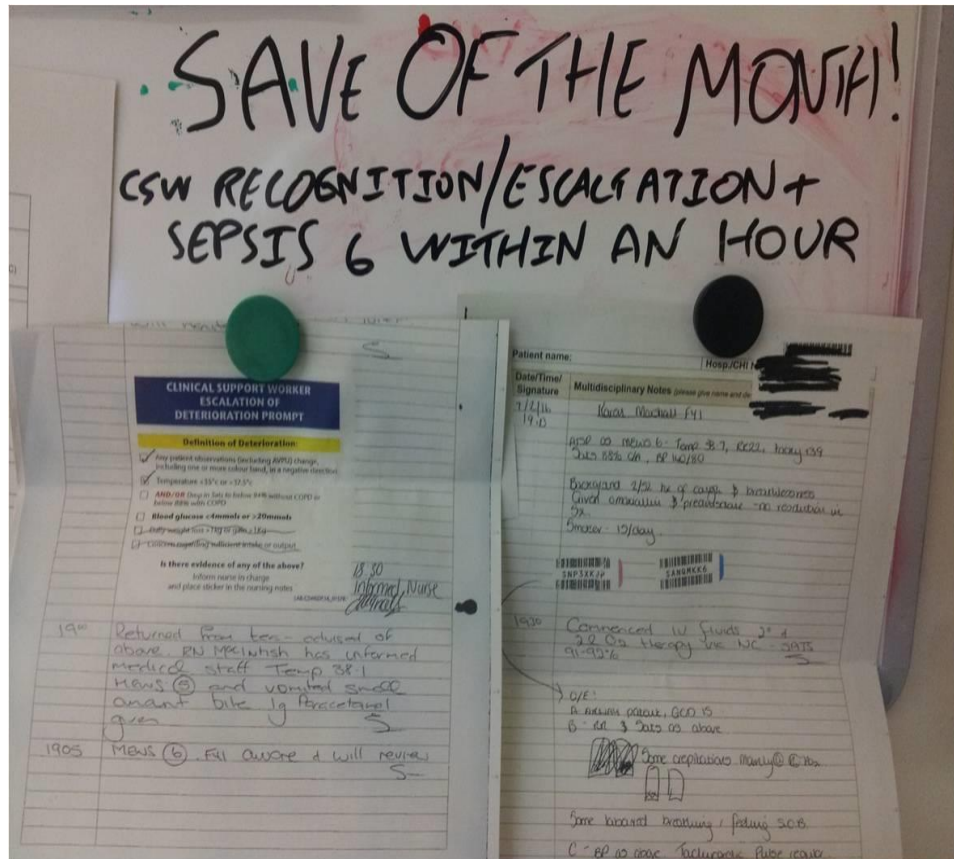 SAVE OF THE MONTH!
CSW RECOGNITION/ESCALATION +
SEPSIS 6 WITHIN AN HOUR
CLINICAL SUPPORT WORKER
ESCALATION OF
DETERIORATION PROMPT
Definition of Deterioration:
Any patient observations (including AVPU) change,
including one or more colour band, in a negative direction
Temperature <35°c or >37.5°c
AND/OR Drop in Sats to below 94% without COPD or
below 88% with COPD
Blood glucose <4mmols or >20mmols
Concerns regarding sufficient intake or output
Is there evidence of any of the above?
Inform nurse in charge
and place sticker in the nursing notes
18.30
Informed Nurse
19°°
Returned from tea - advised of
above. RN McIntosh has informed
medical staff Temp 38.1
MEWS 5 and vomited small
amount bile 1g Paracetamol
given S
1905
MEWS 6. FY1 aware & will review
S
Patient name:
Hosp./CHI
Date/Time/
Signature
Multidisciplinary Notes (please give name and
Marshall FY1
MEWS 6 - Temp 38.7, RR22, tachy 139
Sats 88% O/A, BP 140/80
Background 2/52 hx of cough & breathlessness
Given amoxicillin & prednisolone - no resolution in
Sx.
Smoker - 15/day.
1930
Commenced IV fluids 2° &
2L O2 therapy via NC - SATS
91-92% S
O/E:
A - Airway patent, GCS 15
B - RR & Sats as above
Some crepitations mainly
Some laboured breathing, feeling SOB
C - BP as above. Tachycardic. Pulse regular